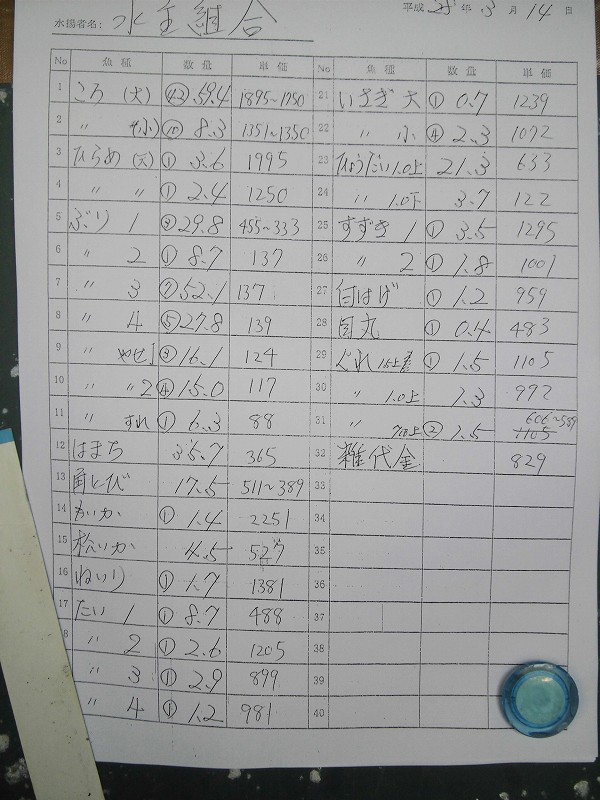 平成 25 年 3 月 14 日
水揚者名: 水主組合
No 魚種 数量 単価 No 魚種 数量 単価
1 ころ (大) 59.4 1895~1750 21 いさぎ 大 ① 0.7 1239
2 〃 (小) 8.3 1351~1350 22 〃 小 ④ 2.3 1072
3 ひらめ (天) ① 3.6 1995 23 ひょうだい 1.0上 21.3 633
4 〃 〃 ① 2.4 1250 24 〃 1.0下 3.7 122
5 ぶり 1 29.8 455~333 25 すずき 1 ① 3.5 1295
6 〃 2 ① 8.7 137 26 〃 2 ① 1.8 1001
7 〃 3 ⑦ 52.1 137 27 白はげ ① 1.2 959
8 〃 4 ⑤ 27.8 139 28 目丸 ① 0.4 483
9 〃 やせ1 ③ 16.1 124 29 ぐれ ① 1.5 1105
10 〃 〃2 ④ 15.0 117 30 〃 1.0上 1.3 992
11 〃 すれ ① 6.3 88 31 〃 ② 1.5 1105 606~589
12 はまち 35.7 365 32 雑代金 829
13 角とび 17.5 511~389 33
14 ① 1.4 2251 34
15 松いか 4.5 527 35
16 ねいり ① 1.7 1381 36
17 たい 1 ① 8.7 488 37
8 〃 2 ① 2.6 1205 38
〃 3 ① 2.9 899 39
〃 4 ① 1.2 981 40